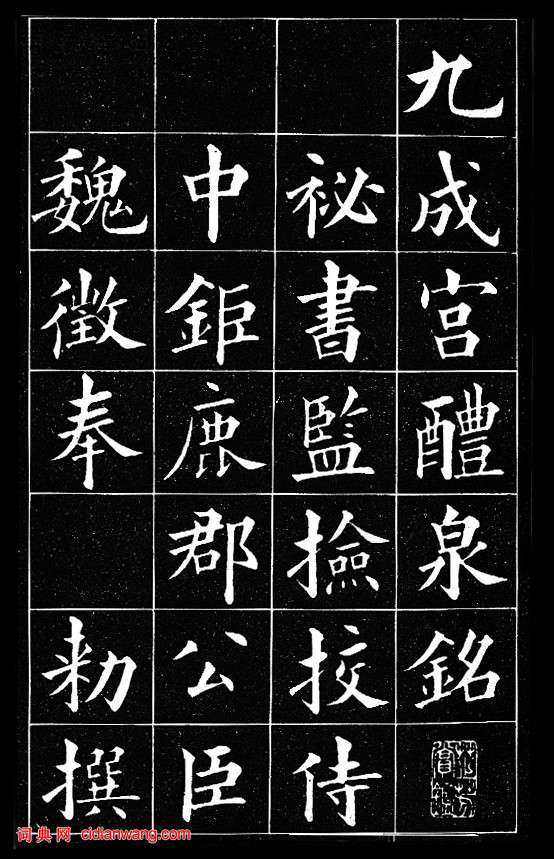 九成宫醴泉銘
祕書監撿挍侍
中鉅鹿郡公臣
魏徵奉 勑撰
词典网 cidianwang.com